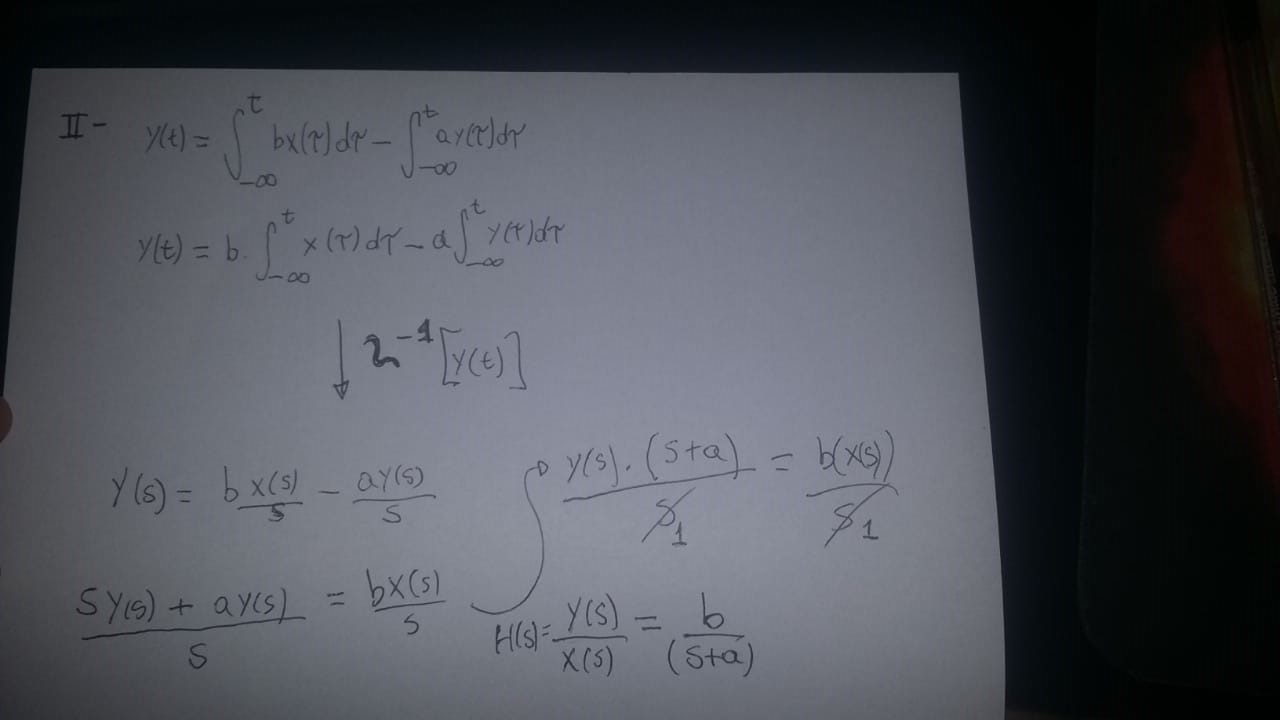 II- y(t) = ∫_{-∞}^{t} bx(τ)dτ - ∫_{-∞}^{t} ay(τ)dτ
y(t) = b. ∫_{-∞}^{t} x(τ)dτ - a∫_{-∞}^{t} y(τ)dτ
↓ L^{-1} [y(t)]
Y(s) = b x(s)/s - ay(s)/s
(SY(s) + aY(s))/s = bX(s)/s
Y(s).(s+a)/s 1 = b(X(s))/s 1
H(s) = Y(s)/X(s) = b/(s+a)